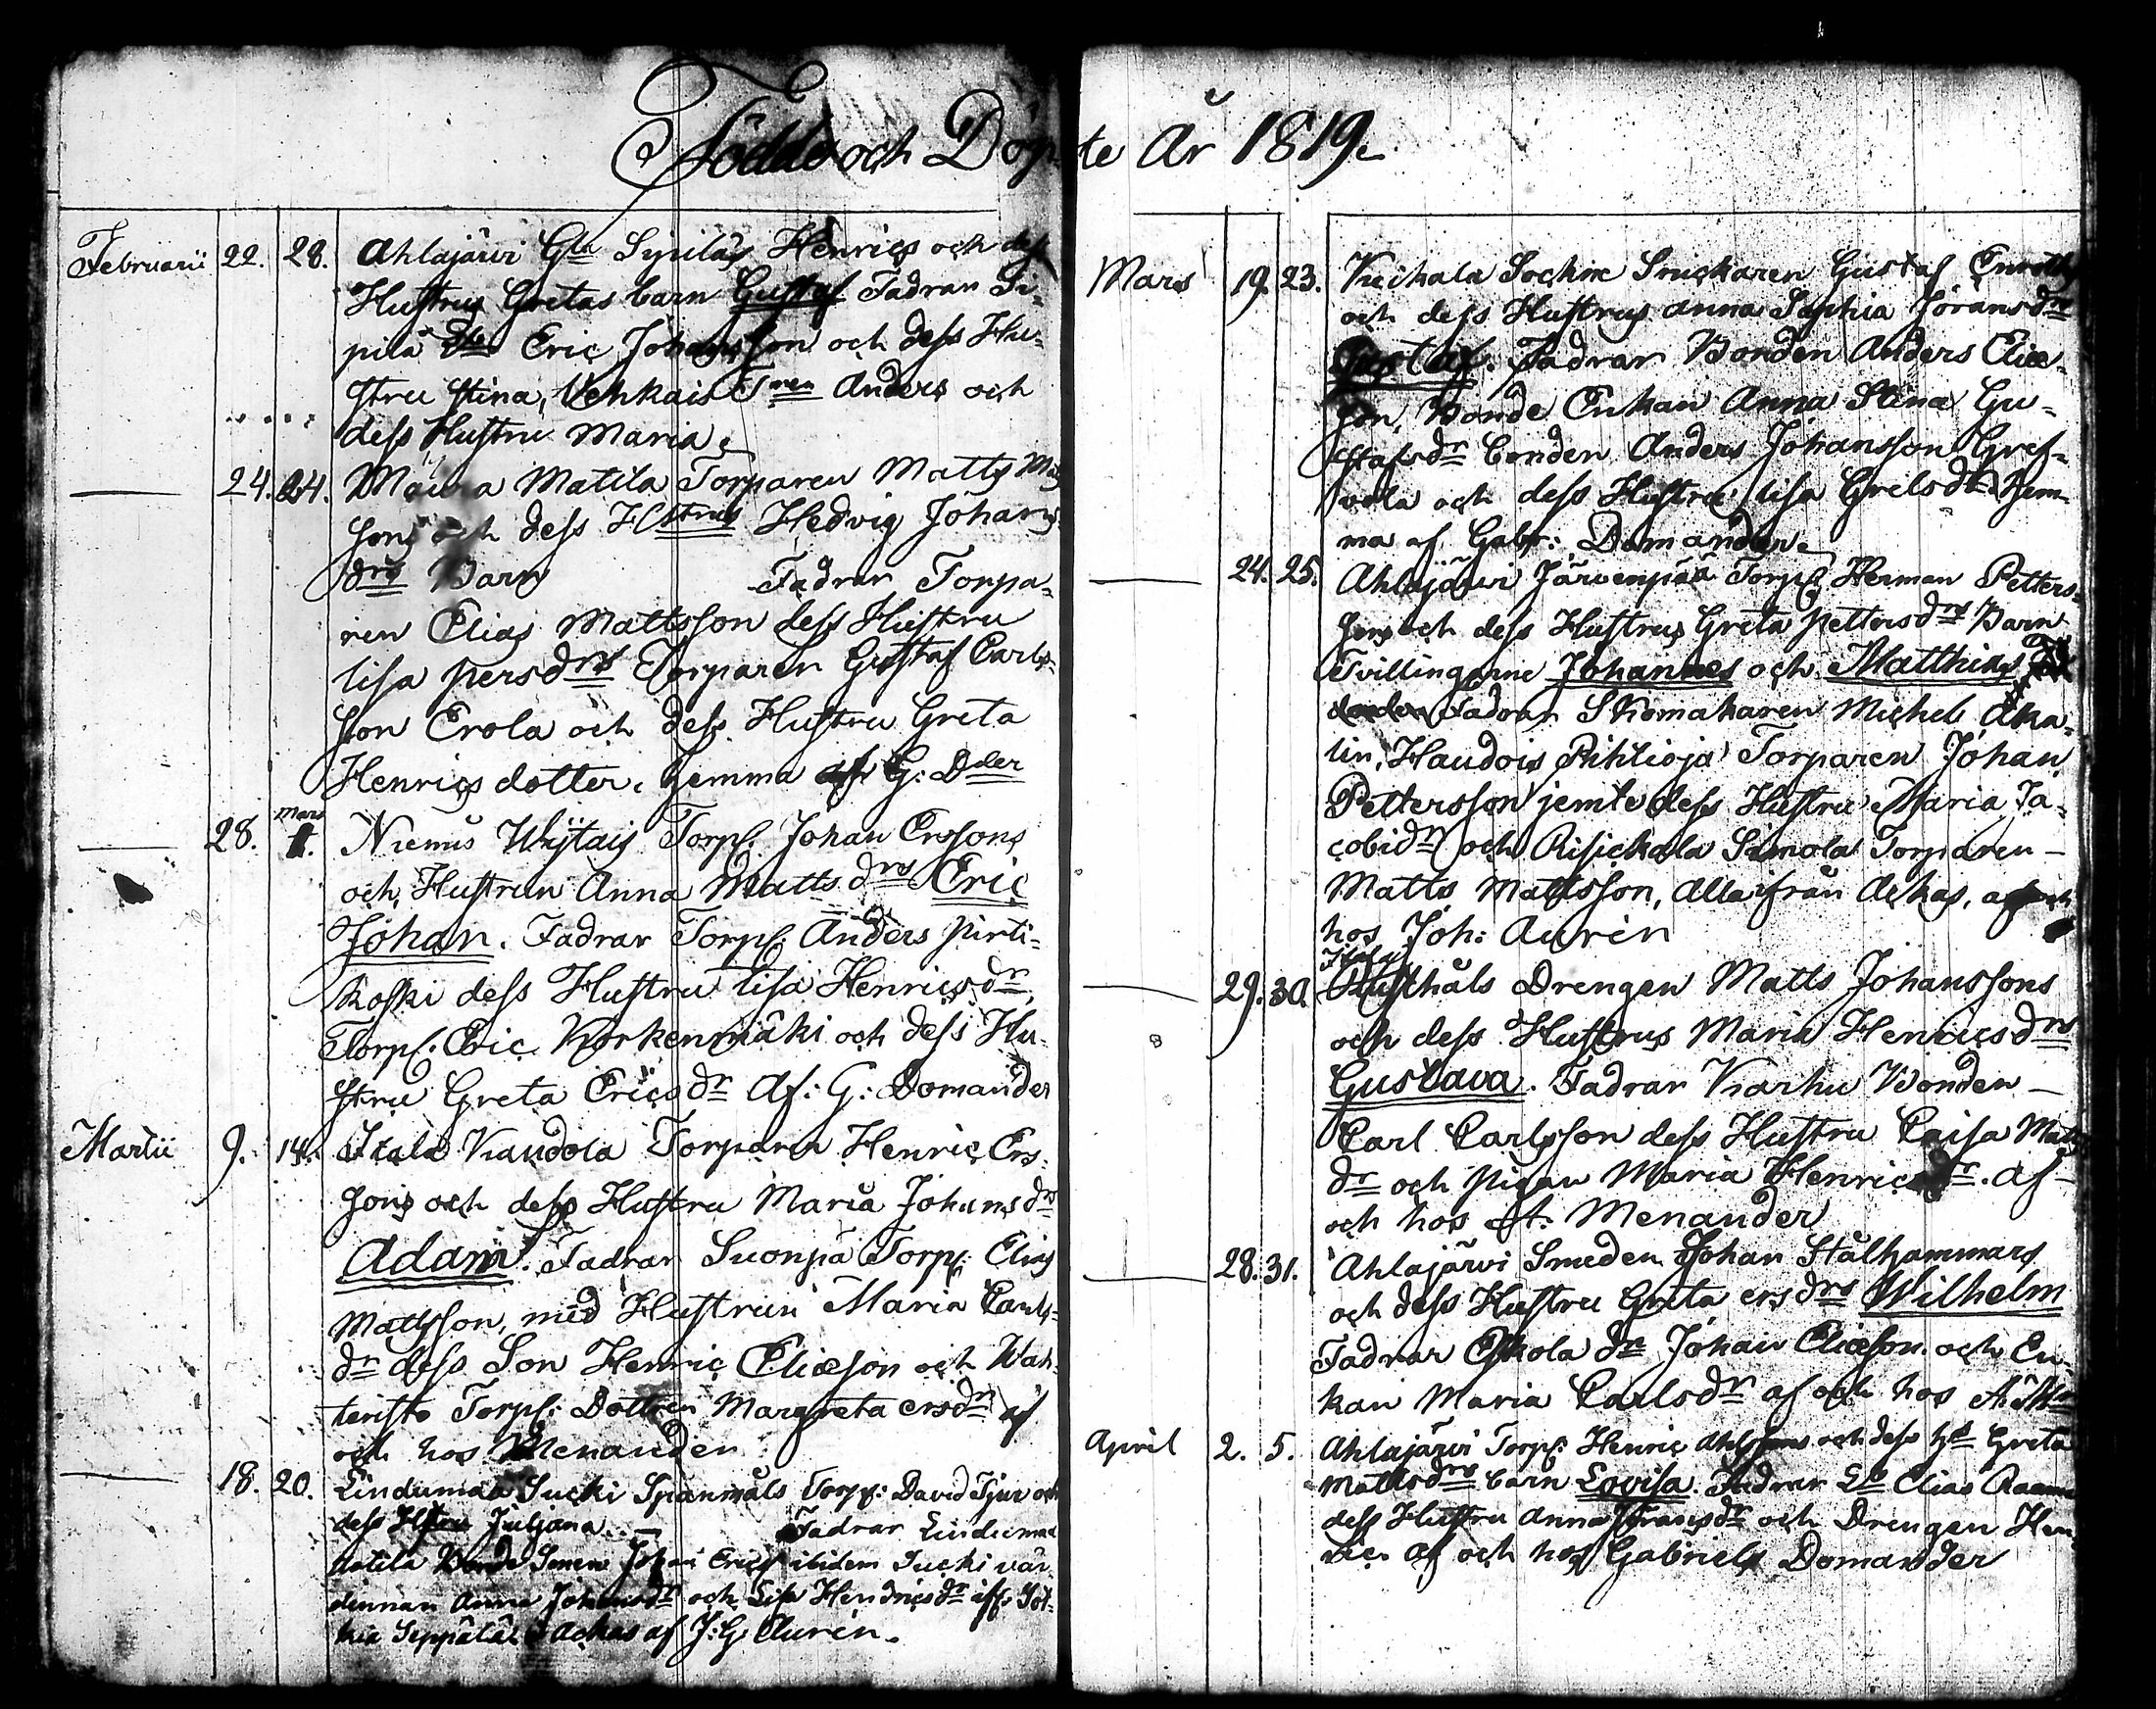 Födde och Döpte År 1819.
Februarii 22. 28. Ahlajärvi Gla Syriläs Henrics och dess
Hustrus Gretas barn Gustaf Fadrar Si-
pilä Eric Johansson och dess Hu-
stru Stina, Vehkais Anders och
dess Hustru Maria.
24. 24. Matila Torparen Matts
sons och dess Hustrus Hedvig Johans
drs Barn Fadrar Torpa-
ren Elias Mattsson dess Hustru
Lisa persdrs Torparen Gustaf Carls-
son Erola och dess Hustru Greta
Henrics dotter. hemma af G: Dder
28. Mars 1. Niemis Torp. Johan Erssons
och Hustrun Anna Mattsdrs Eric
Johan. Fadrar Torp. Anders Pirti-
koski dess Hustru Lisa Henricsdr,
Torp. Eric Korkenmäki och dess Hu-
stru Greta Ericsdr Af: G: Domander
Martii 9. 14. Itala Kaudola Torparen Henric Ers-
sons och dess Hustru Maria Johansdrs
Adam. Fadrar Suonpä Torp: Elias
Mattsson, med Hustrun Maria Carls-
dr dess Son Henric Eliæson och Wah-
teristo Torp: Dottren Margreta ersdr af
och hos Menander
18. 20. Lindumaa Sucki Spanmåls Torp: David och
dess Hstru Juljana. Fadrar Lindumaa
Bonde Sonen Johan Erics ibidem Sucki vär-
dinnan Anna Johansdr och Lisa Hendricsdr
Seppälä i Ackas af J:G: Aurén.
Mars 19. 23. Kuckala Sochne Snickaren Gustaf
och dess Hustrus Anna Sophia Jöransdrs
Gustaf. Fadrar Bonden Anders Eliæ-
son, Bonde Enkan Anna Stina Gu-
stafsdr bonden Anders Johansson Gref-
vola och dess Hustru Lisa Grelsdr hem-
ma af Gabr: Domander.
24. 25. Ahlajärvi Järvenpää Torp. Herman Petters-
sons och dess Hustrus Greta pettersdrs Barn
Tvillingarne Johannes och Matthias
Fadrar Skomakaren Michel Åka-
lin, Haudois Pihlioja Torparen Johan
Pettersson jemte dess Hustru Maria Ja-
cobidr och Risickala Simola Torparen
Matts Mattsson, alla ifrån Ackas, af och
hos Joh: Aurén
29. 30. Itala
Rusthåls Drengen Matts Johanssons
och dess Hustrus Maria Henricsdrs
Gustava. Fadrar Karhu Bonden
Carl Carlsson dess Hustru Caisa Matts
dr och pigan Maria Henricsdr. af
och hos A: Menander
28. 31. Ahlajärvi Smeden Johan Stålhammars
och dess Hustru Greta ersdrs Wilhelm
Fadrar Eskola Johan Eliæson och En-
kan Maria Carlsdr af och hos A: M
April 2. 5. Ahlajärvi Torp: Henric och dess Greta
Mattsdrs barn Lovisa. Fadrar Elias
dess Hustru Anna Fransdr och Drengen Hen
ric. af och hos Gabriel Domander